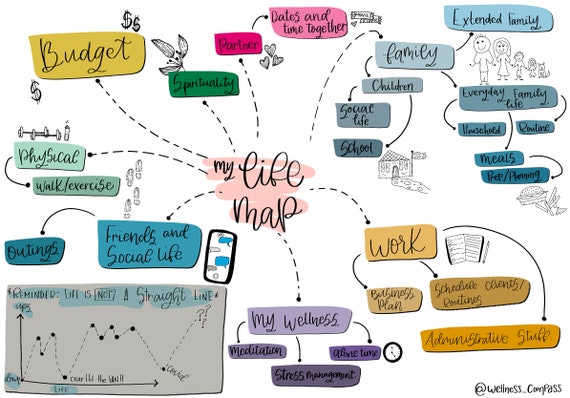 $$
Budget
$
Spirituality
Partner
Dates and
time together
Extended Family
family
Children
Social
life
School
Everyday Family
life
Household
Routine
meals
Prep/Planning
Physical
Walk/exercise
my life
map
Friends and
Social Life
Outings
Work
Business
Plan
Schedule Clients/
Routines
Administrative Stuff.
My Wellness
Meditation
Alone time
Stress management
*REMINDER: LIFE IS NOT A Straight Line*
ups
??
covid
down
LIFE
@Wellness_Compass